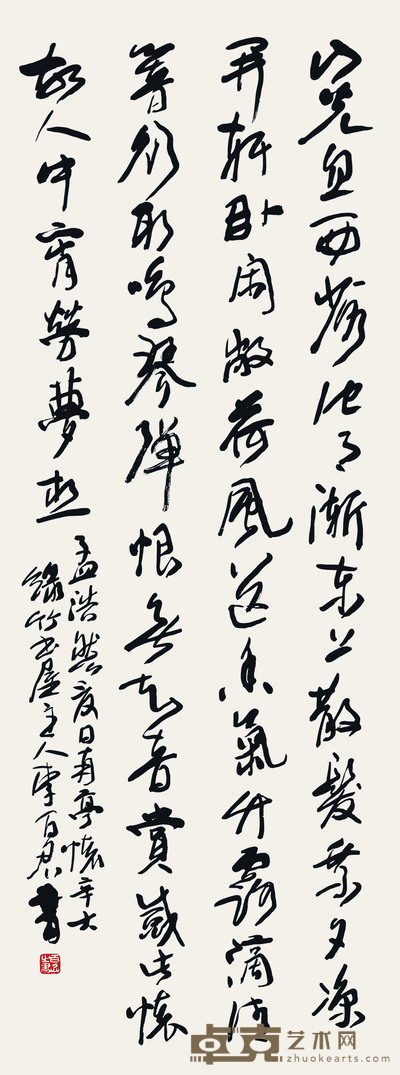 山光忽西落池月漸东上散髮乘夕涼
開軒卧閑敞荷風送香氣竹露滴清
響欲取鳴琴彈恨無知音賞感此懷
故人中宵勞夢想
孟浩然夏日南亭懷辛大
綠竹书屋主人李百忍書
卓克艺术网
zhuokearts.com